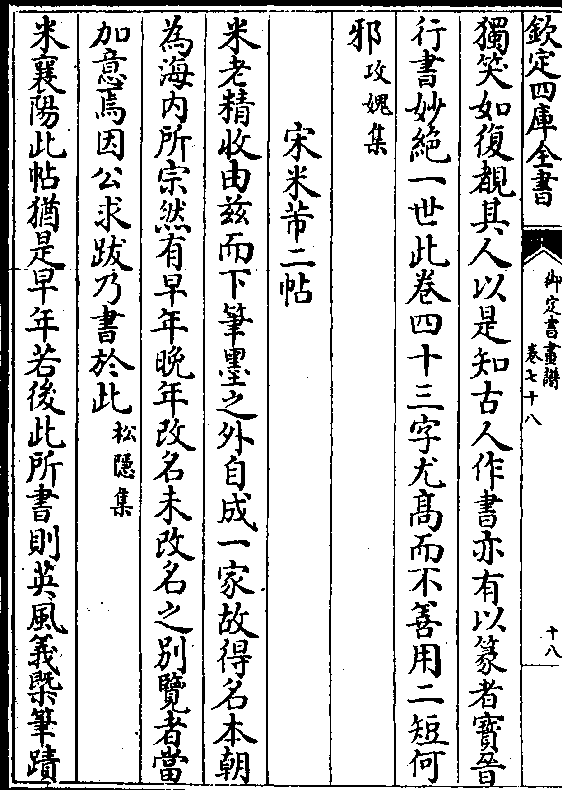 欽定四庫全書
御定書畫譜
卷七十八
十八
獨笑如復覩其人以是知古人作書亦有以篆者寶晉
行書妙絕一世此卷四十三字尤髙而不善用二短何
邪攻媿集
宋米芾二帖
米老精收由兹而下筆墨之外自成一家故得名本朝
為海内所宗然有早年晩年改名未改名之别覽者當
加意焉因公求跋乃書於此松隱集
米襄陽此帖猶是早年若後此所書則英風義槩筆蹟